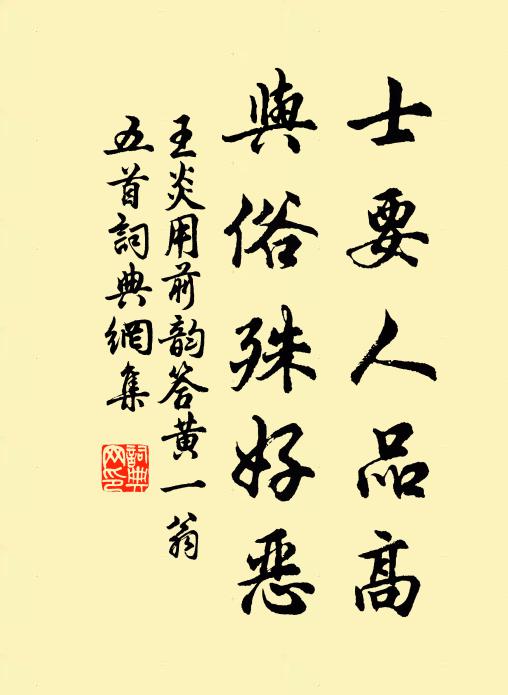 士要人品高
與俗殊好惡
王炎用前韵答黄一翁
五首詞典網集
詞典
网印